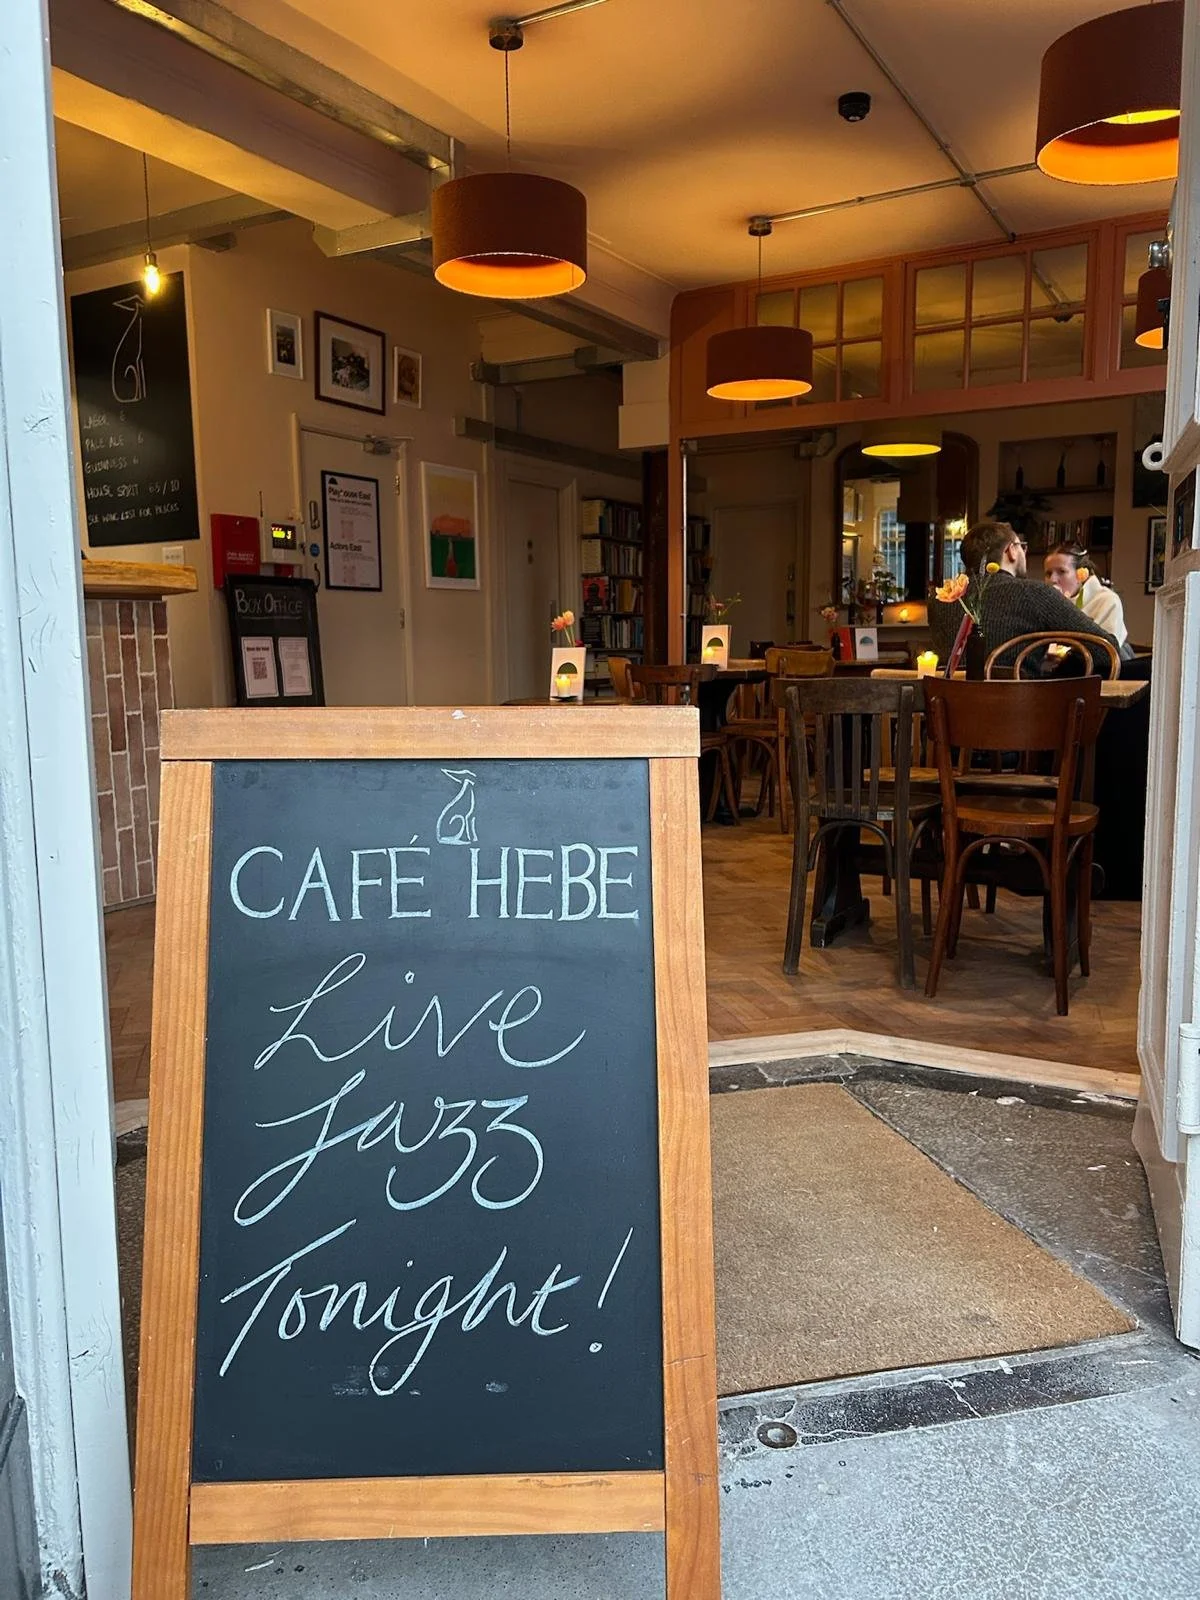 LAGER 6
PALE ALE 6
GUINNESS 6
HOUSE SPIRIT 6.5/10
SEE WINE LIST FOR PRICES
Playhouse East
Actors East
BOX OFFICE
CAFÉ HEBE
Live
Jazz
Tonight!